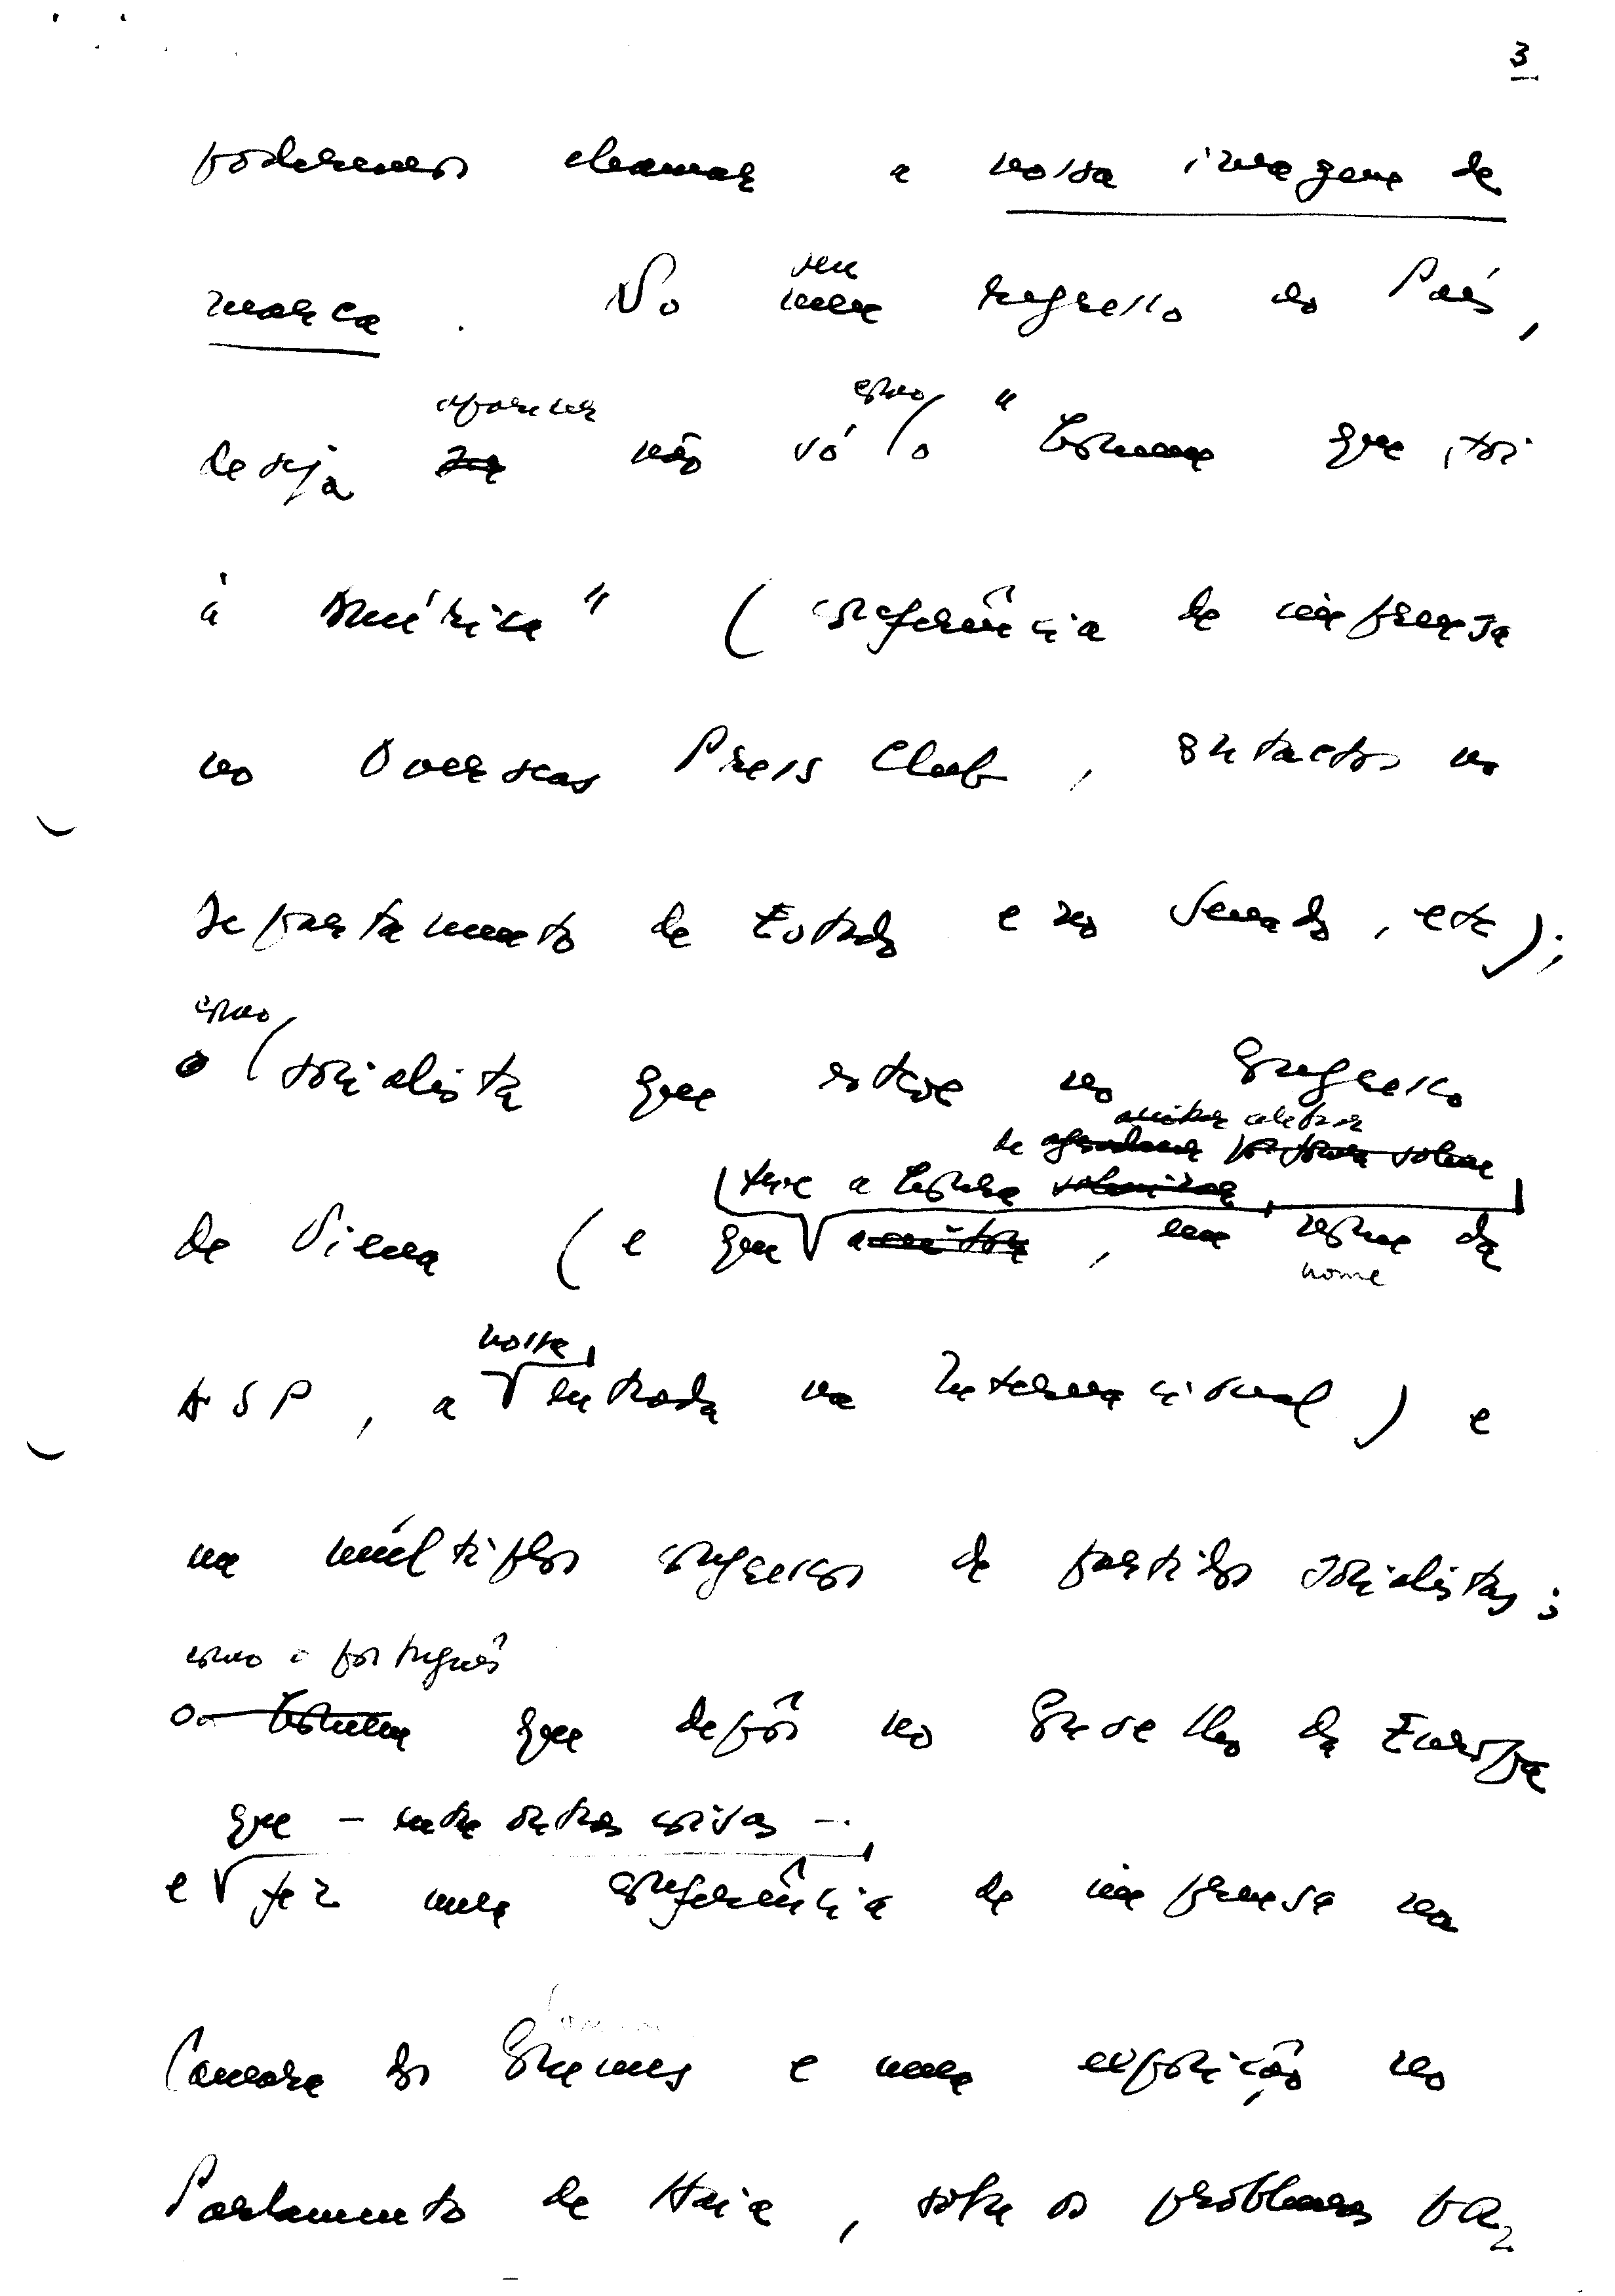 3
poderemos chamar a nossa imagem de
seu
marca. No meu regresso ao País,
aparecer como
deseja ser não só o "homem que foi
à América" (conferência de imprensa
no Overseas Press Club, contactos no
Departamento de Estado e no Senado, etc);
como
o socialista que esteve no Congresso
aceitar celebrar
de agradecer por forma solene
teve a honra
de Viena (e que aceitou, em nome da
nome
nossa
ASP, a entrada na Internacional) e
em múltiplos congressos de partidos socialistas;
como o português
o homem que depôs no Conselho da Europa
que – entre outras coisas –
e fez uma conferência de imprensa na
Camara dos Comuns e uma exposição no
Parlamento de Haia, sobre os problemas